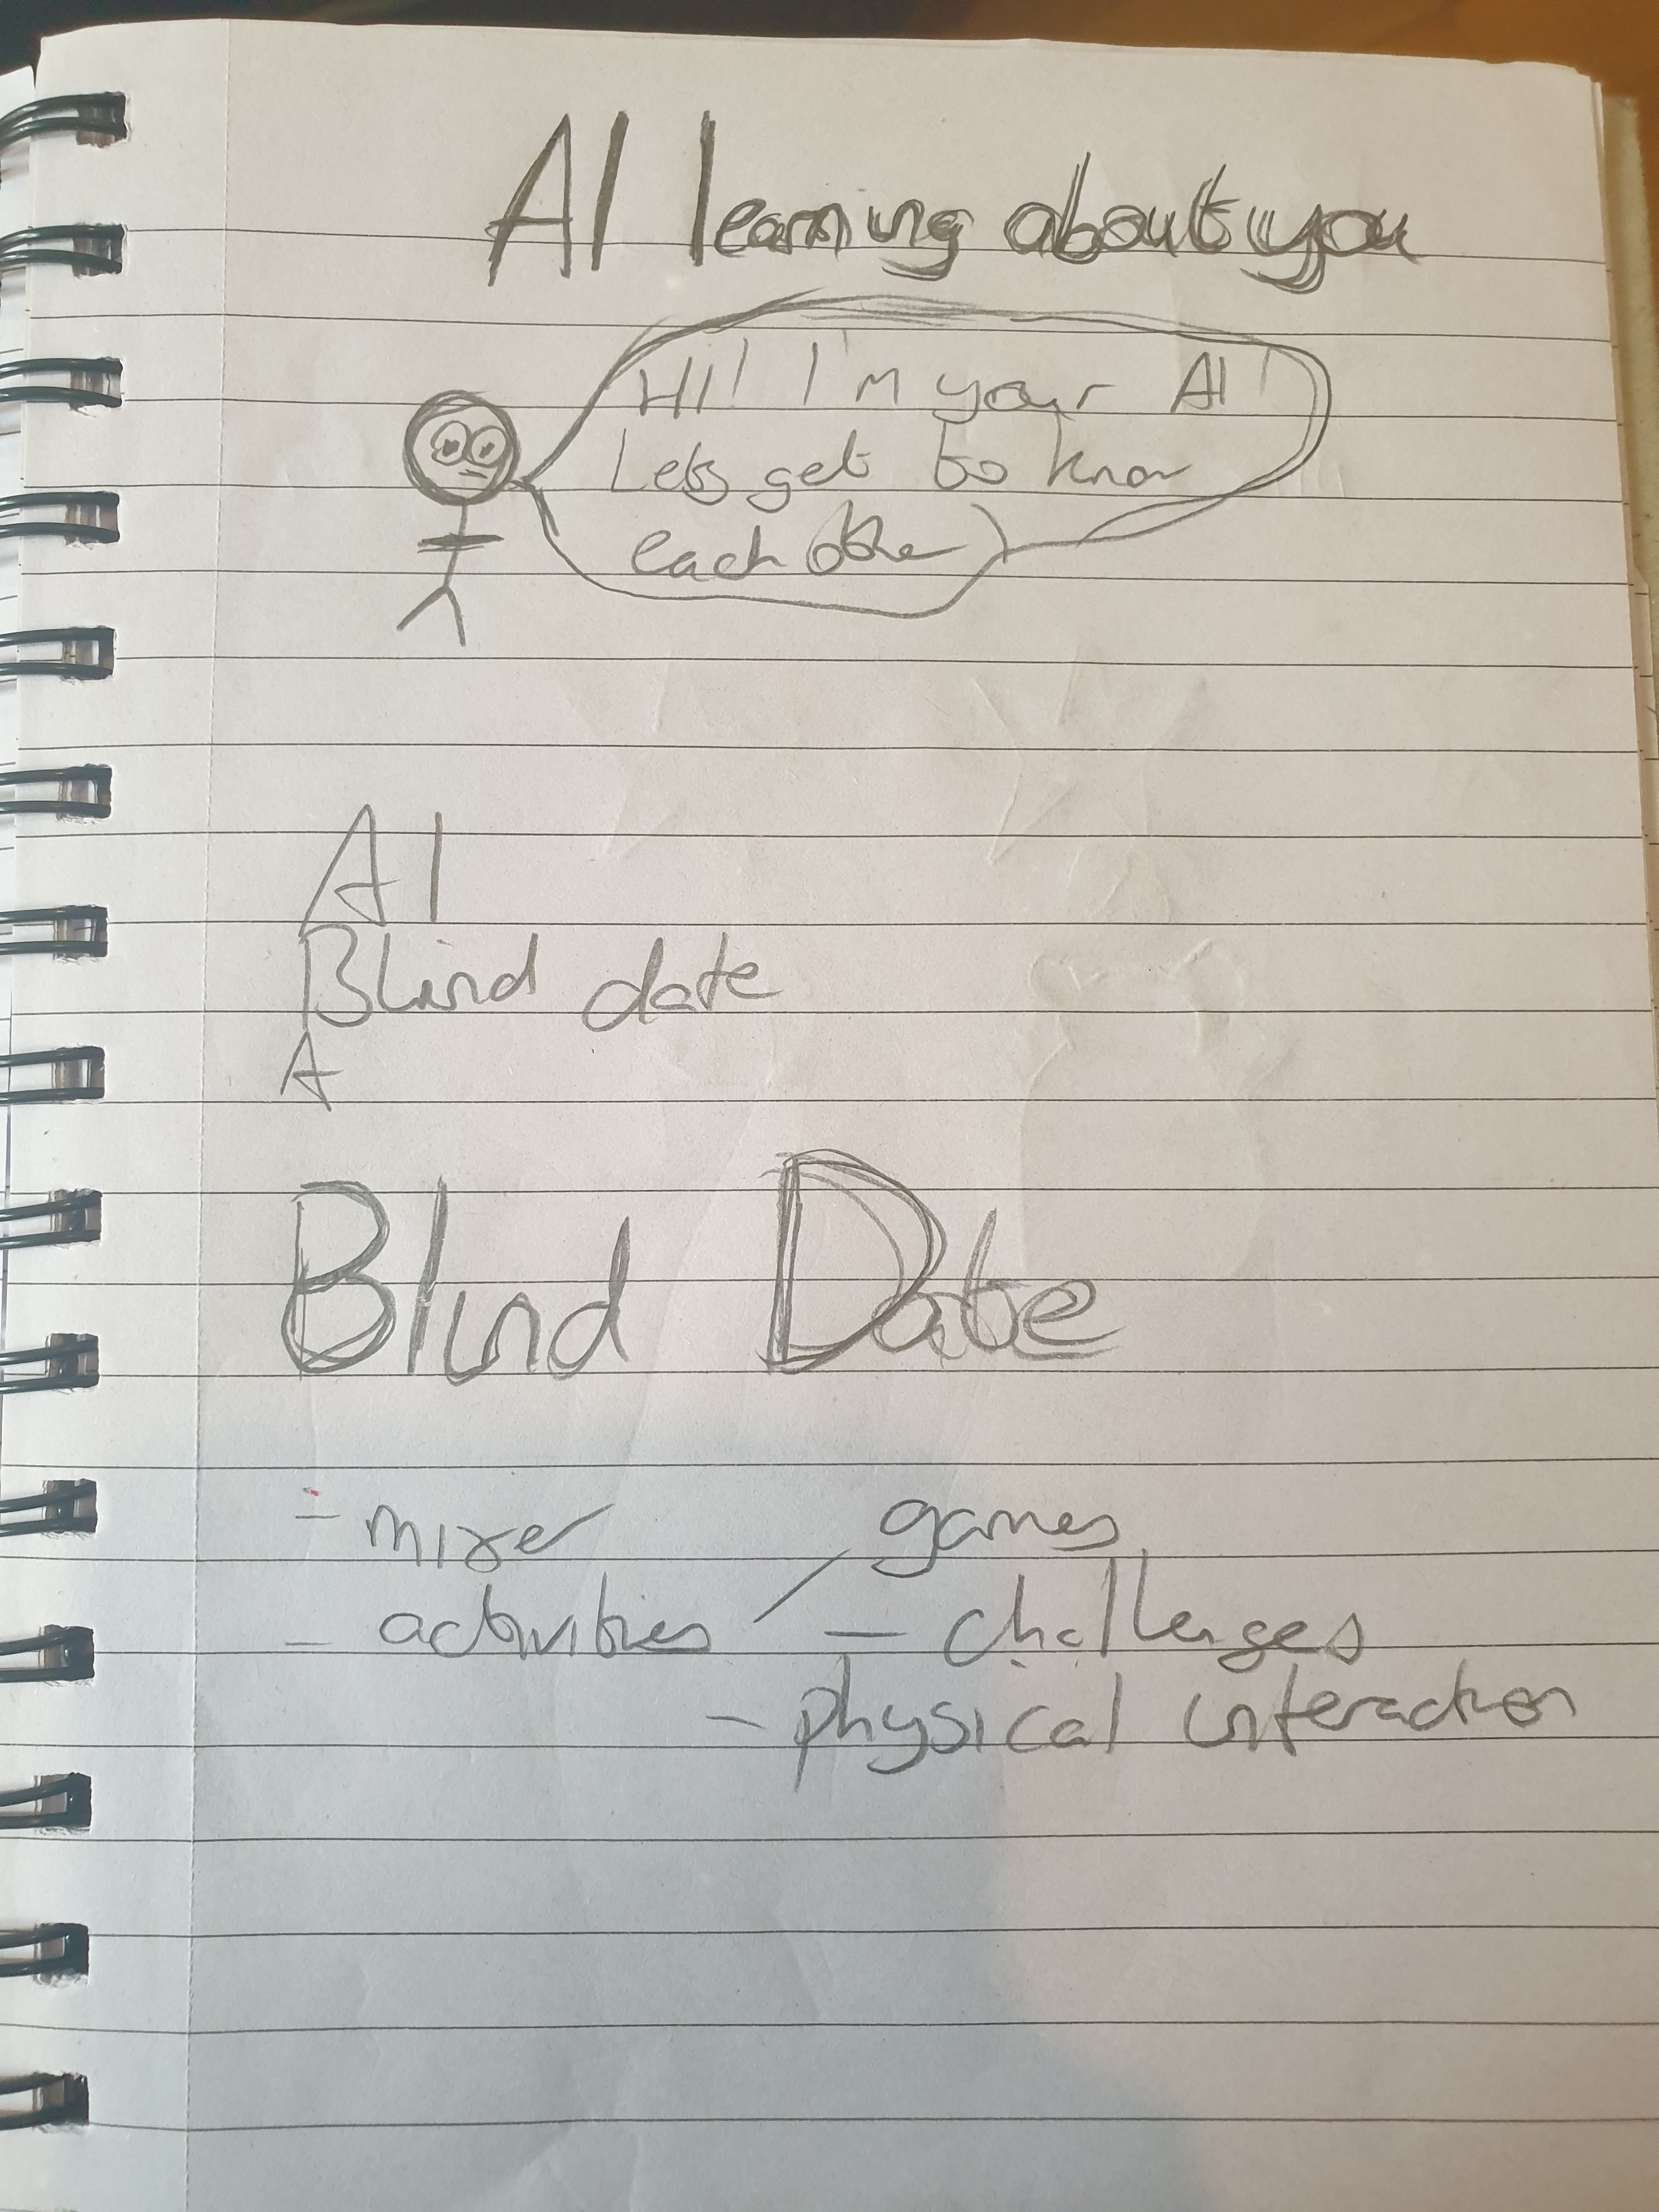 AI learning about you
Hi! I'm your AI!
Lets get to know
each other
AI
Blind date
A
Blind Date
- mixer
games
- activities / - challenges
- physical interaction